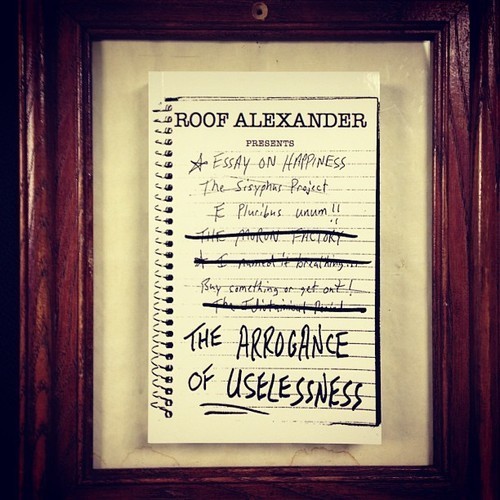 ROOF ALEXANDER
PRESENTS
☆ ESSAY ON HAPPINESS
The Sisyphus Project
E Pluribus unum!!
THE MORON FACTORY
☆ I named it breathing...
Buy something or get out!
The
THE ARROGANCE
OF USELESSNESS